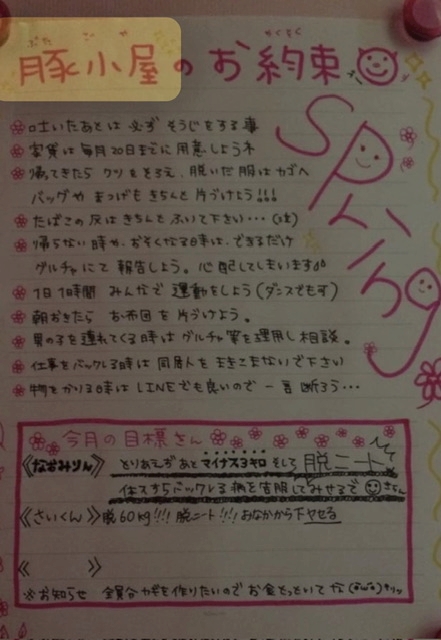 ぶた ご や やくそく
豚小屋のお約束
spring
吐いたあとは必ずそうじをする事
家賃は毎月20日までに用意しようネ
帰ってきたらクツをそろえ、脱いだ服はカゴへ
バッグやまつげもきちんと片づけよう!!!
たばこの灰はきちんとふいて下さい…(泣)
帰らない時か、おそくなる時は、できるだけ
グルチャにて報告しよう。心配してしまいます
1日1時間 みんなで運動をしよう(ダンスでもす)
朝おきたら お布団を片づけよう。
男の子を連れてくる時はグルチャ等を運用し相談。
仕事をバックレる時は同居人をまきこまないで下さい
物をかりる時はLINEでも良いので一言断ろう…
今月の目標さん
《なおみりん》とりあえずあとマイナス3キロそして脱ニート
体スすらバックレる病を克服してみせるで
《さいくん》脱60kg!!!脱ニート!!!おなかから下ヤセる
《 》
※お知らせ 全員合カギを作りたいのでお金とっといてな(o'ω'o)キリッ